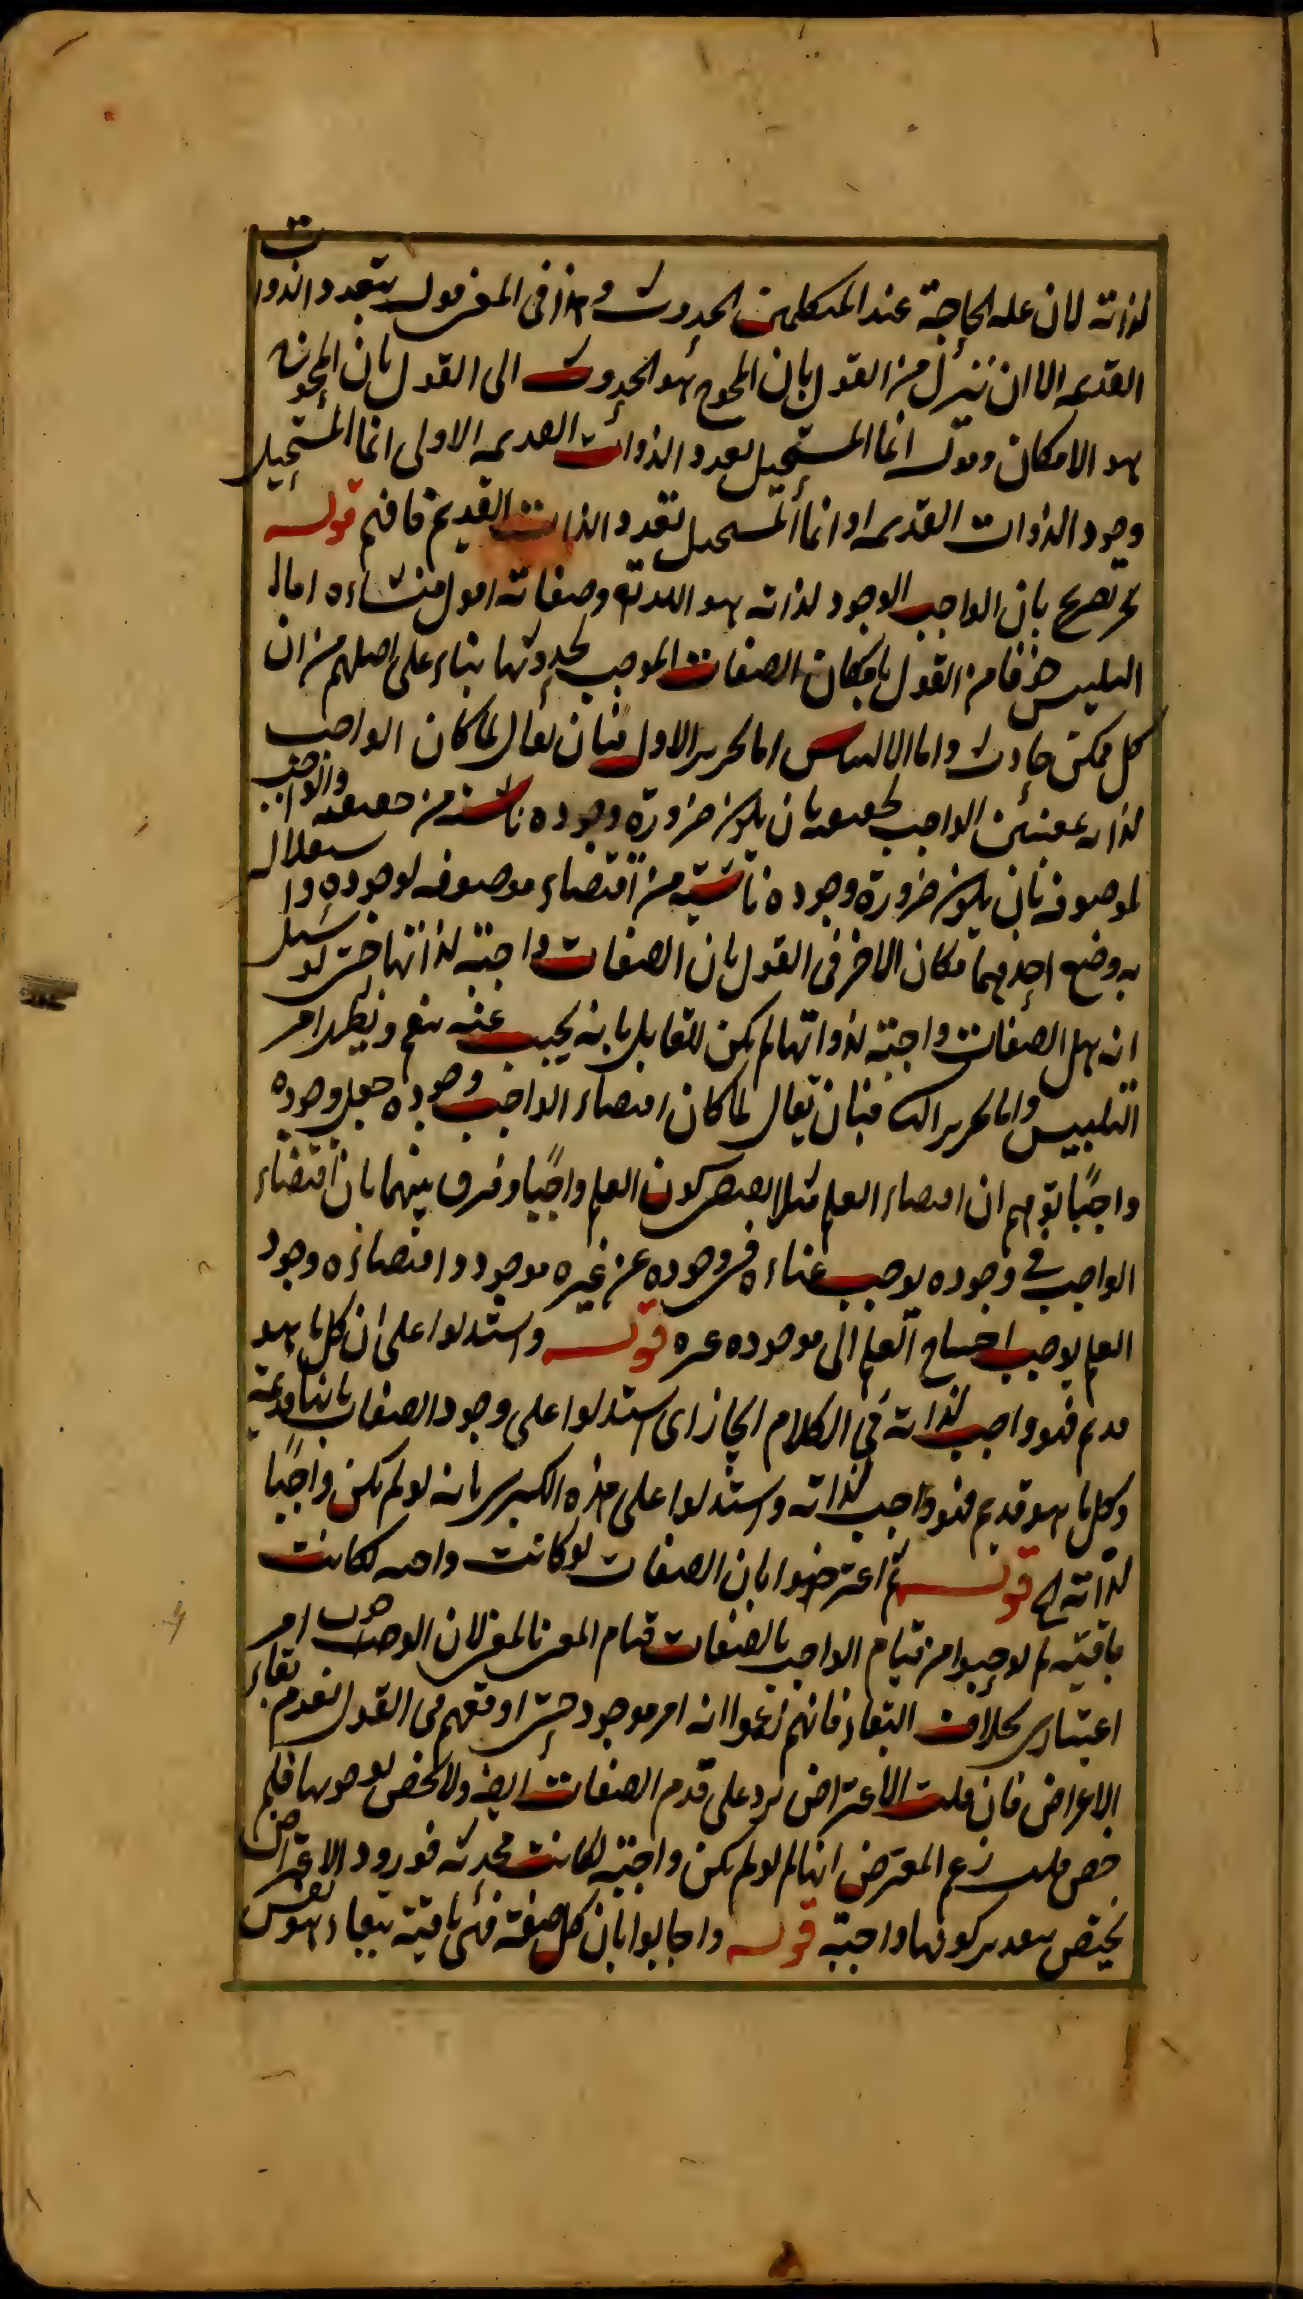 لذاته لان علة الحاجة عند المتكلمين الحدوث وهذا في المعنى قول بتعدد الذوات
القديمة الا ان تنزل من القول بان المحوج هو الحدوث الى القول بان المحوج
هو الامكان وقوله انما المستحيل تعدد الذوات القديمة الاولى انما المستحيل
وجود الذوات القديمة او انما المستحيل تعدد الذات القديم فافهم قوله
تصريح بان الواجب الوجود لذاته هو الله تع وصفاته اقول منشاءه اما
التلبيس خوفا من القول بامكان الصفات الموجب لحدوثها بناء على اصلهم من ان
كل ممكن حادث واما الالتباس اما تحرير الاول فبان يقال لما كان الواجب
لذاته بمعنيين الواجب لحقيقته بان يكون ضرورة وجوده ناشئة من حقيقته والواجب
لموصوفه بان يكون ضرورة وجوده ناشئة من اقتضاء موصوفه لوجوده
به وضع احدهما مكان الاخر في القول بان الصفات واجبة لذاتها حتى لو سئل
انه هل الصفات واجبة لذواتها لم يكن للقايل بانه يجيب عنه بنعم ويظهر امر
التلبيس واما تحرير الثا فبان يقال لما كان اقتضاء الواجب وجوده جعل وجوده
واجبا توهم ان اقتضاء العلم مثلا يقتضي كون العلم واجبا وفرق بينهما بان اقتضاء
الواجب في وجوده يوجب غناءه في وجوده عن غيره موجود واقتضاءه وجود
العلم يوجب احتياج العلم الى موجود غيره قوله واستدلوا على ان كل ما هو
قديم فهو واجب لذاته في الكلام ايجاز اي استدلوا على وجود الصفات بانها قديمة
وكل ما هو قديم فهو واجب لذاته واستدلوا على هذه الكبرى بانه لو لم يكن واجبا
لذاته الخ قوله ثم اعترضوا بان الصفات لو كانت واجبة لكانت
باقية لم يوجبوا من قيام الواجب بالصفات قيام المعنى بالمعنى لان الوجوب امر
اعتباري بخلاف البقاء فانهم زعموا انه امر موجود حتى اوقعهم في القول بعدم بقاء
الاعراض فان قلت الاعتراض يرد على قدم الصفات ايضا ولا يخص بوجوبها فلم
خص قلت زعم المعترض انها لو لم يكن واجبة لكانت محدثة فورود الاعتراض
يختص بتقدير كونها واجبة قوله واجابوا بان كل صفة فهي باقية ببقاء هو نفس